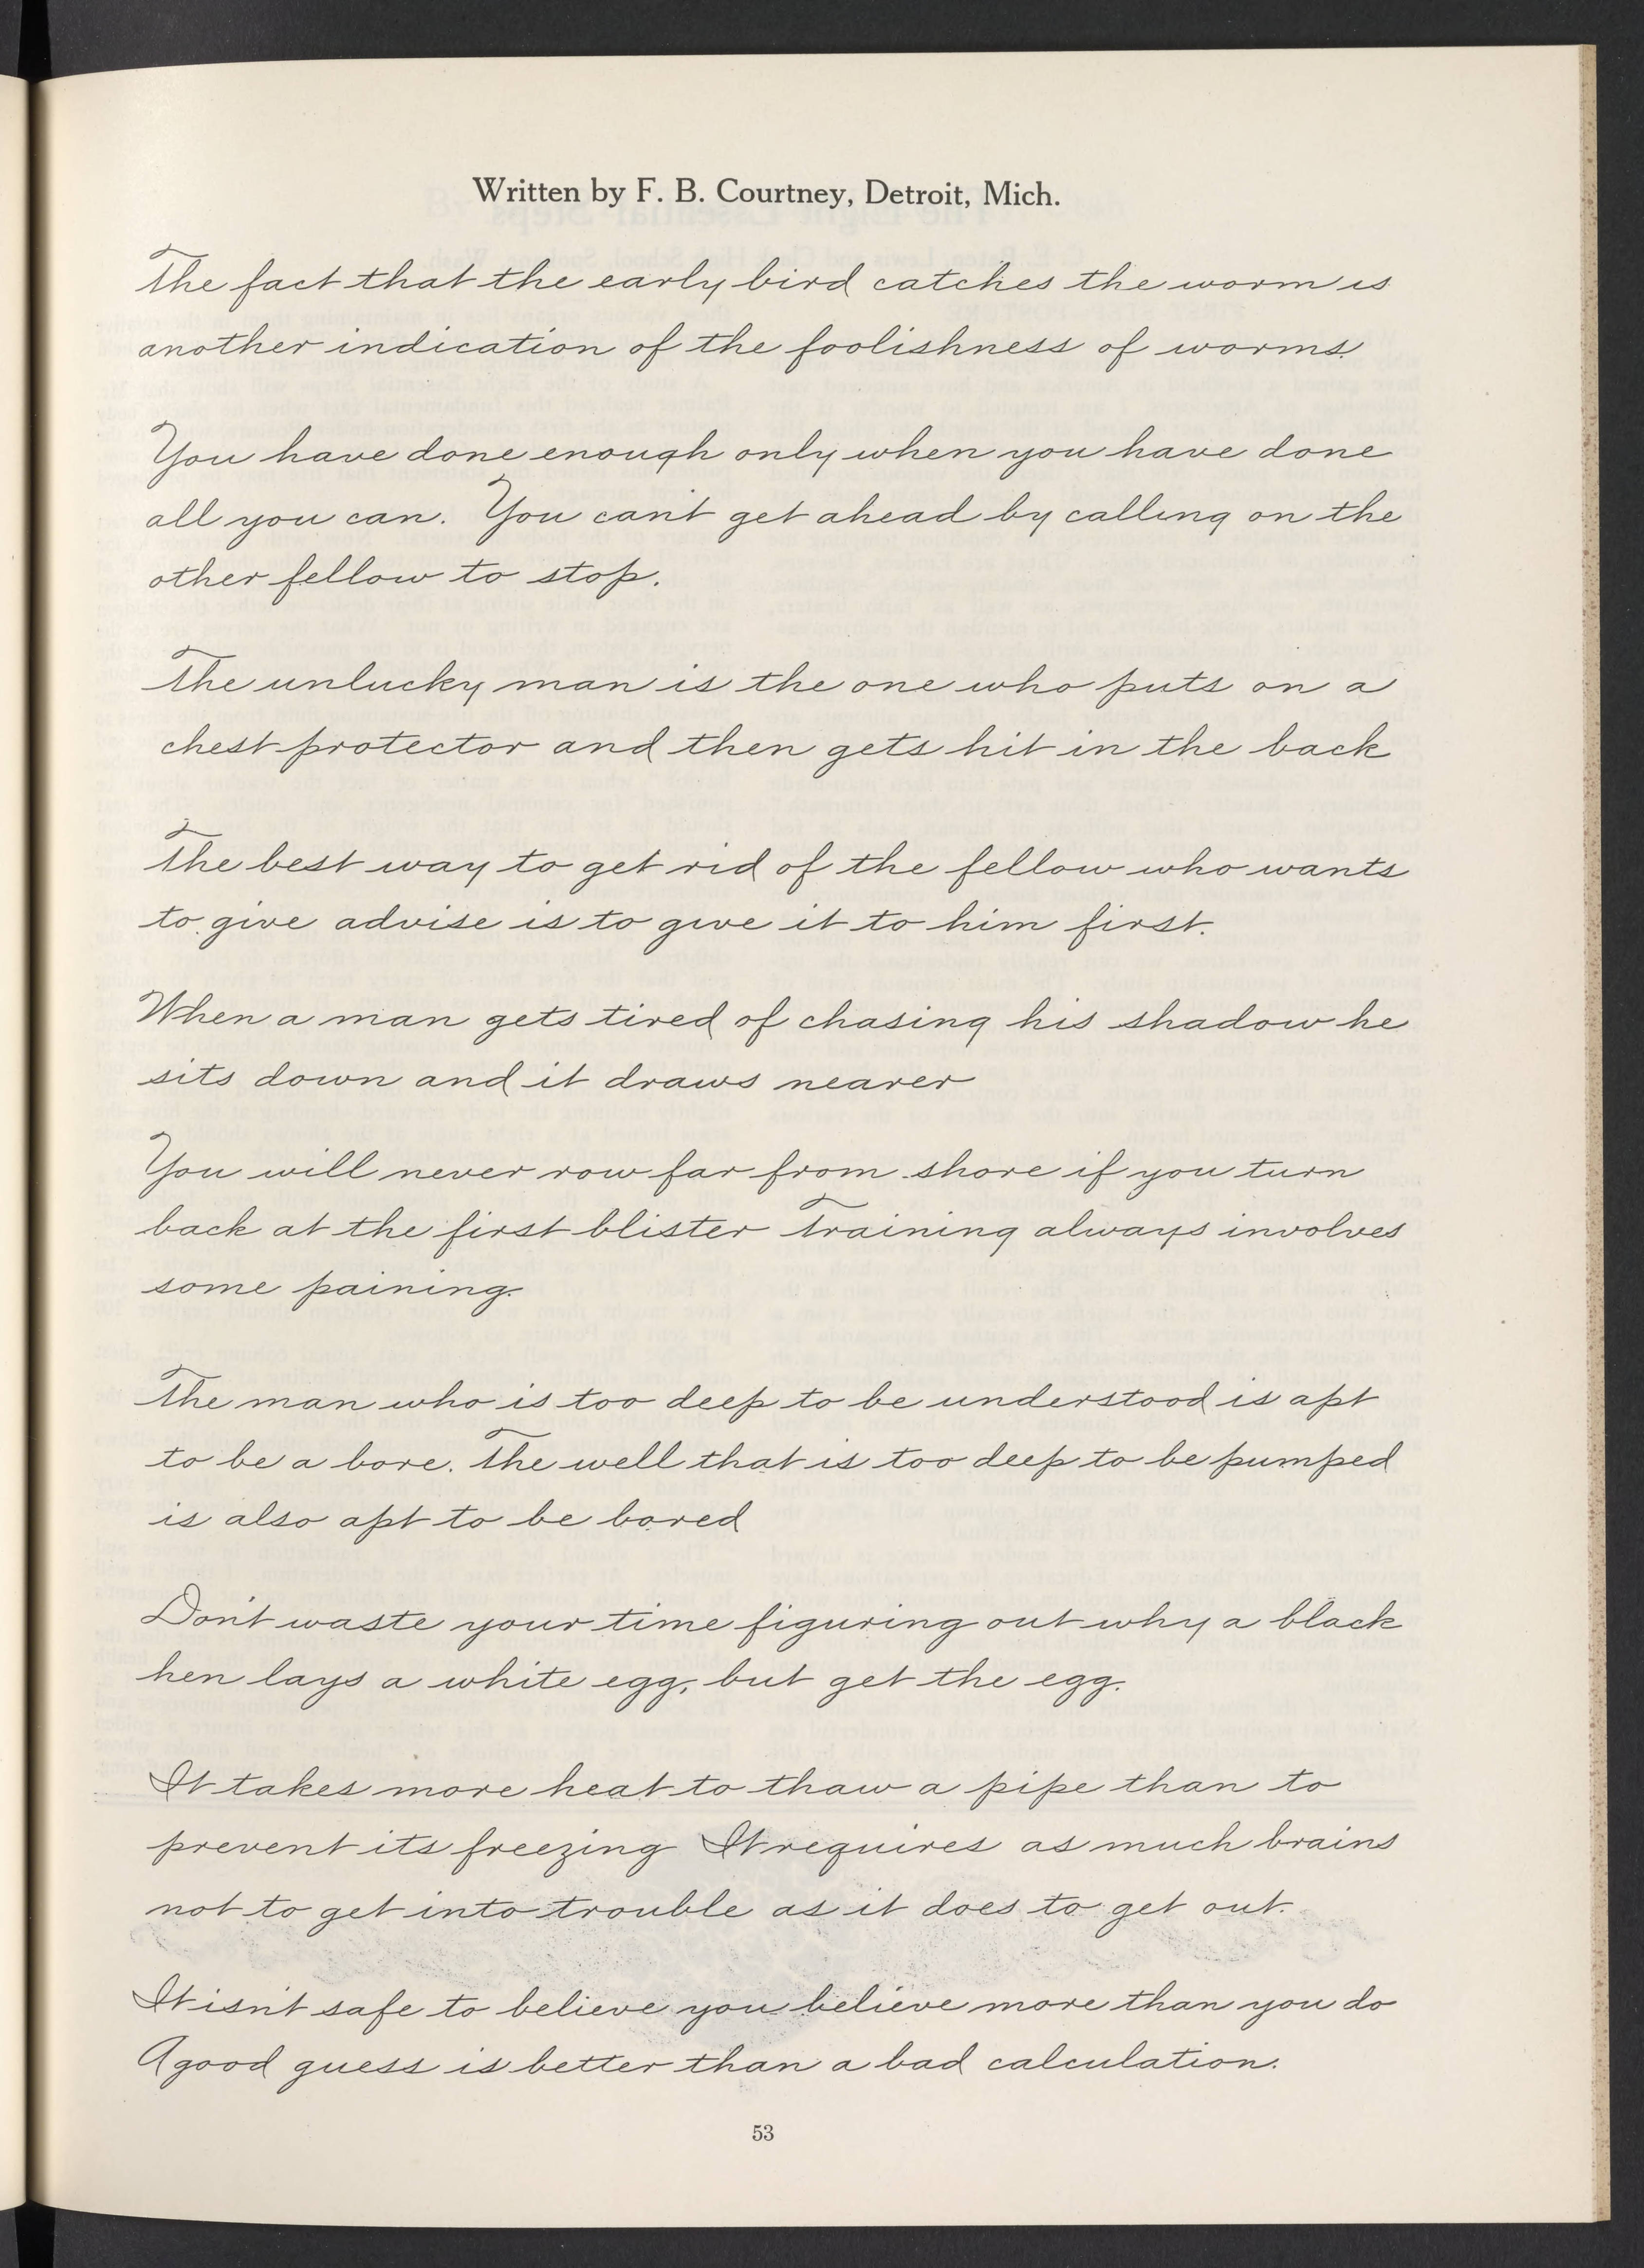 Written by F. B. Courtney, Detroit, Mich.
The fact that the early bird catches the worm is
another indication of the foolishness of worms.
You have done enough only when you have done
all you can. You can't get ahead by calling on the
other fellow to stop.
The unlucky man is the one who puts on a
chest protector and then gets hit in the back
The best way to get rid of the fellow who wants
to give advise is to give it to him first.
When a man gets tired of chasing his shadow he
sits down and it draws nearer
You will never row far from shore if you turn
back at the first blister Training always involves
some paining.
The man who is too deep to be understood is apt
to be a bore. The well that is too deep to be pumped
is also apt to be bored
Don't waste your time figuring out why a black
hen lays a white egg, but get the egg.
It takes more heat to thaw a pipe than to
prevent its freezing It requires as much brains
not to get into trouble as it does to get out.
It isn't safe to believe you believe more than you do
A good guess is better than a bad calculation.
53